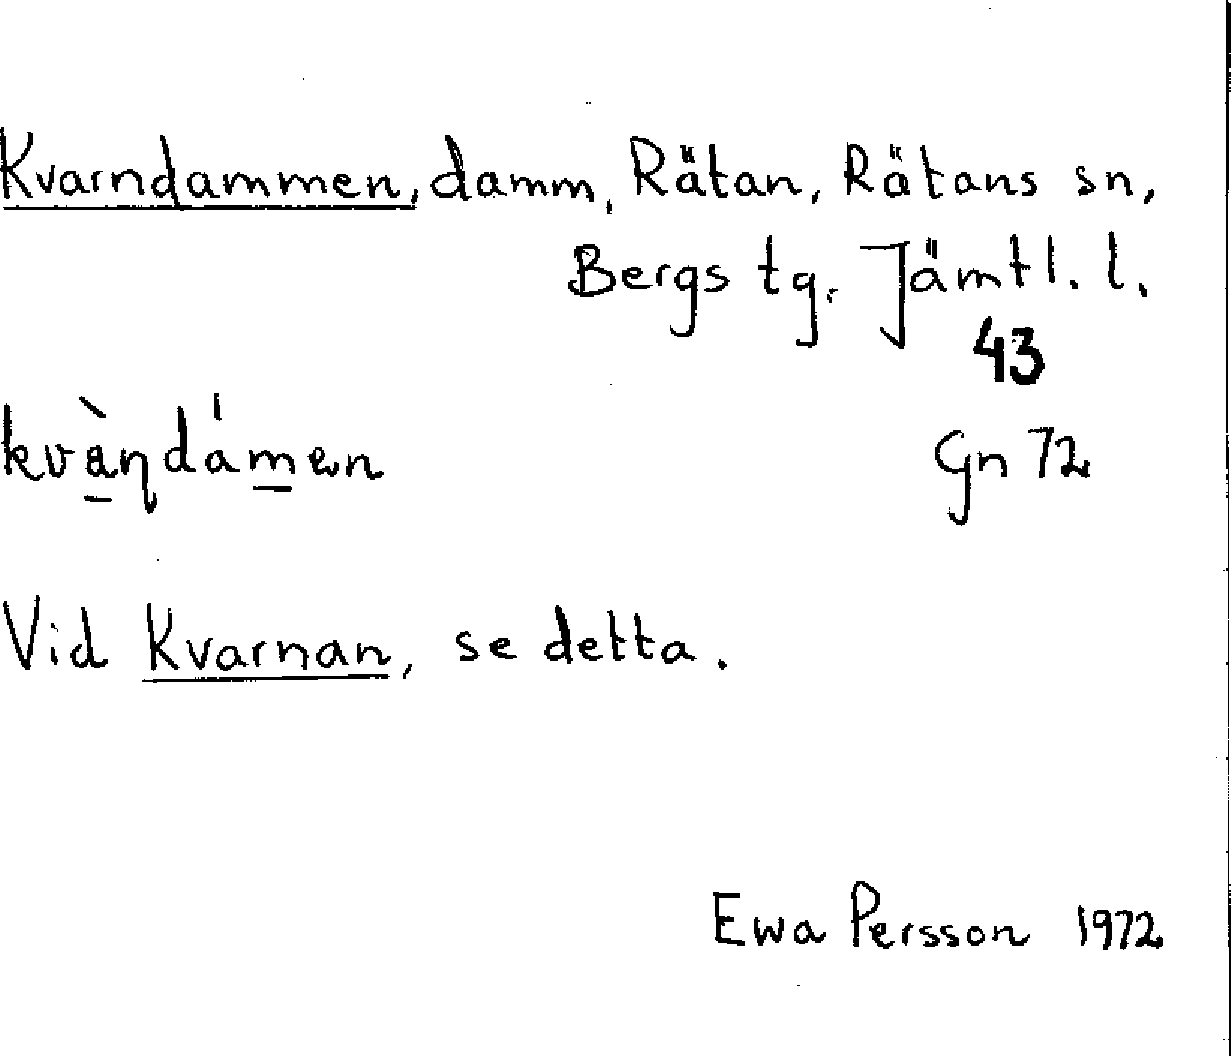 Kvarndammen, damm, Rätan, Rätans sn,
Bergs tg. Jämtl. l.
43
kvàṇdámen
Gn 72
Vid Kvarnan, se detta.
Ewa Persson 1972